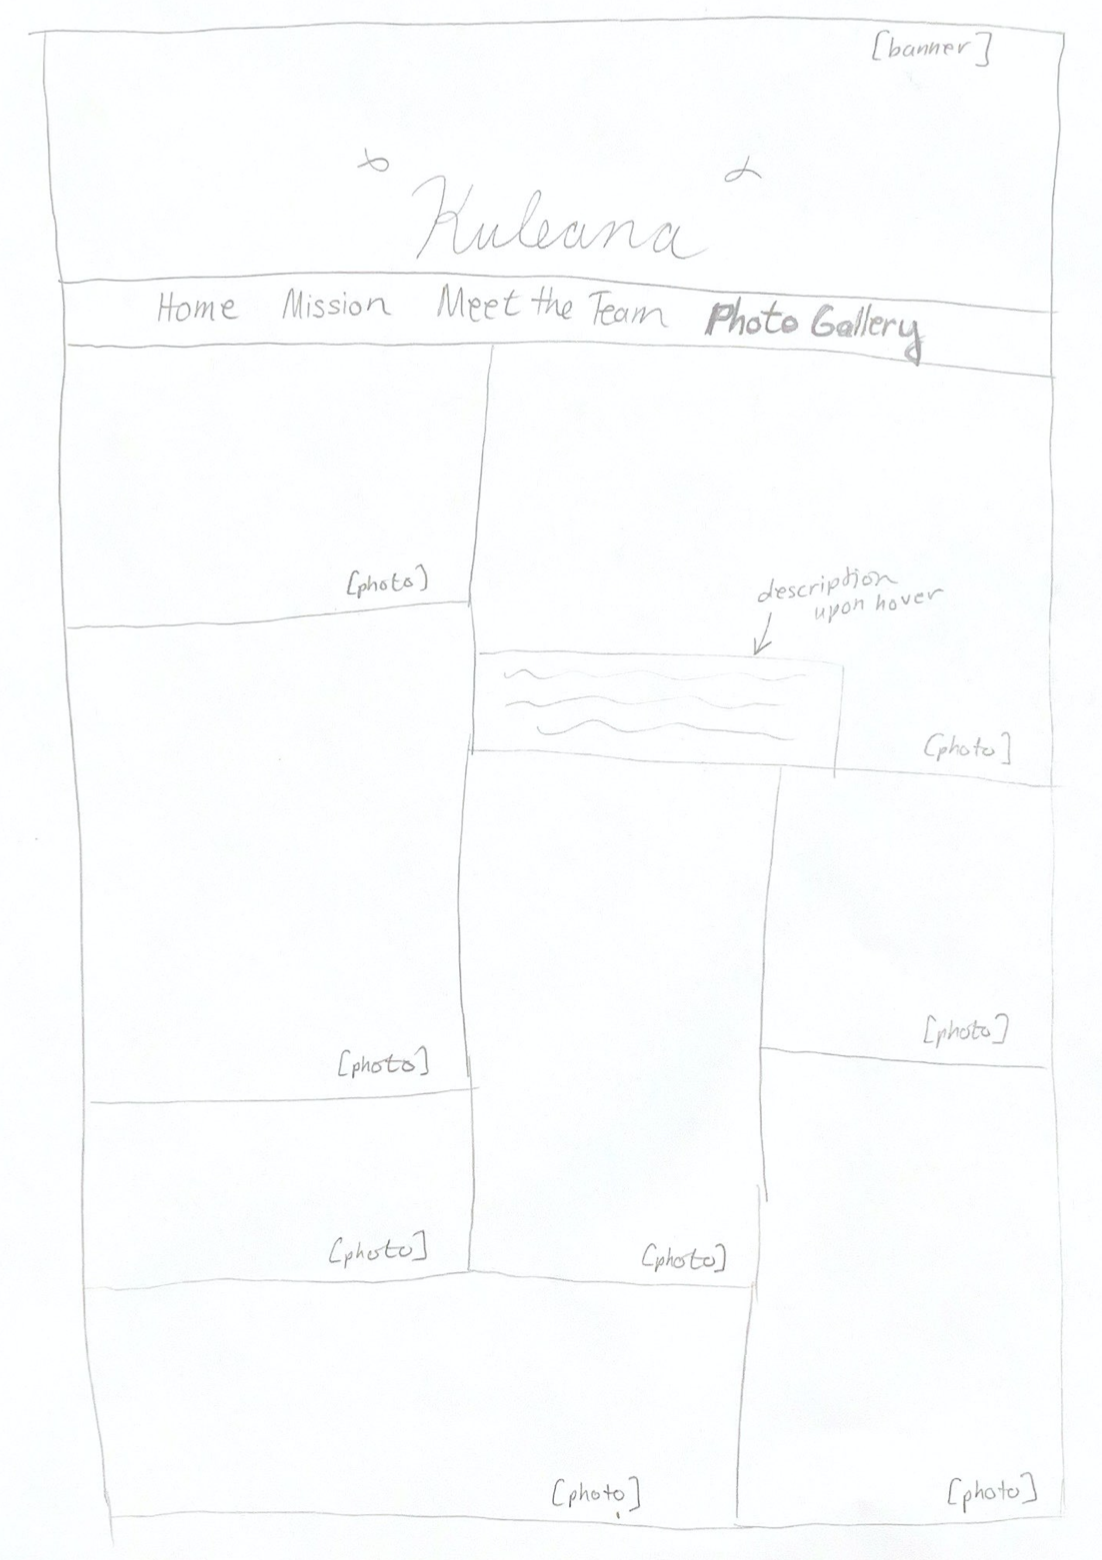 [banner]
Kuleana
Home Mission Meet the Team Photo Gallery
[photo]
description
upon hover
[photo]
[photo]
[photo]
[photo]
[photo]
[photo]
[photo]